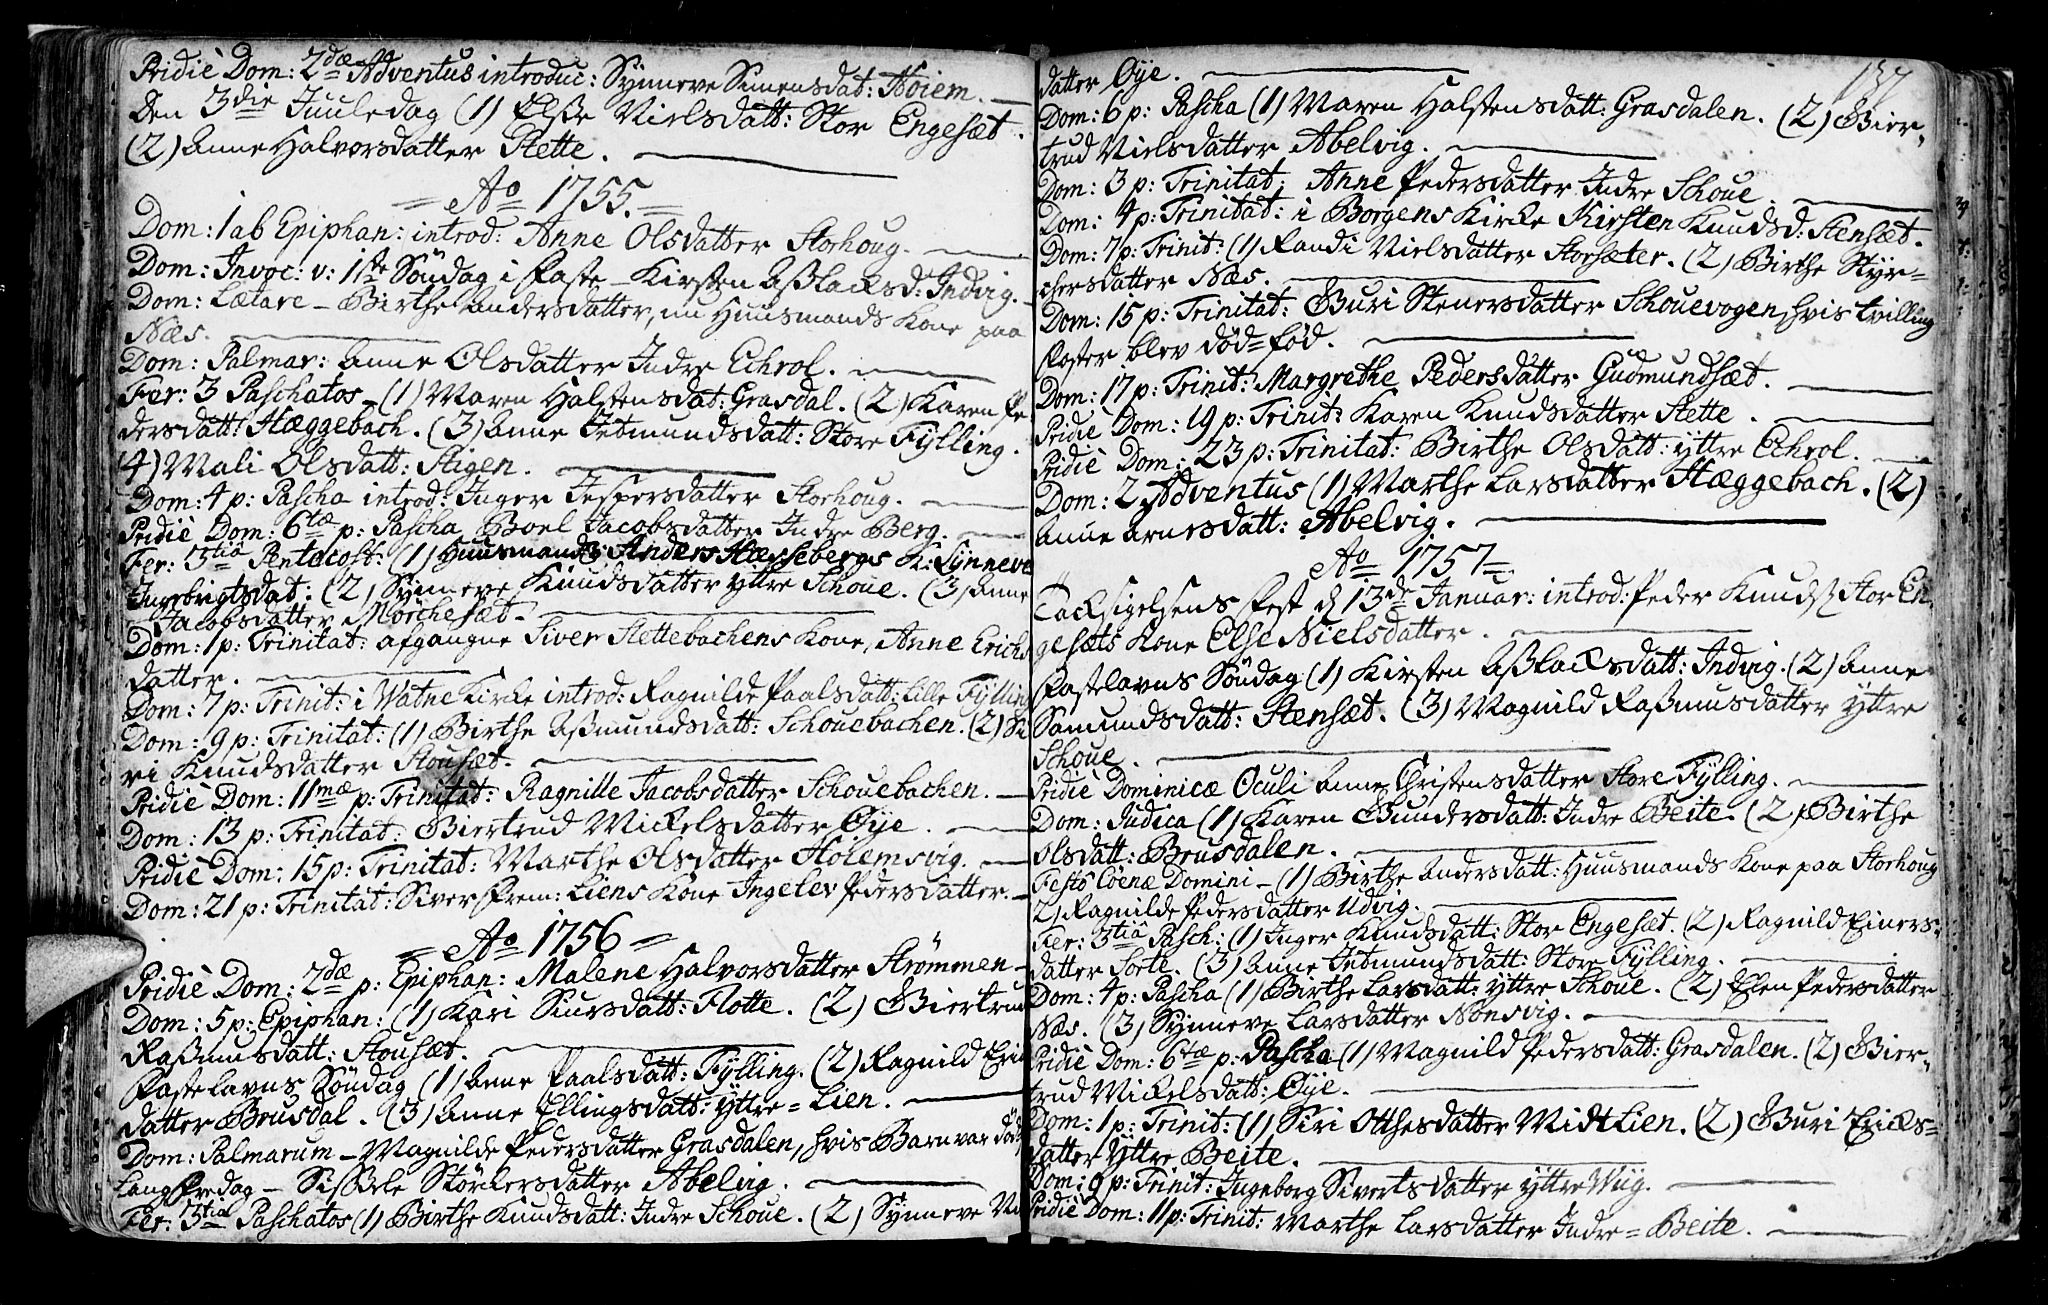 Pridiè Dom: 2dæ Adventus introduc: Synneve Simensdat: Høiem.
Den 3die Juuledag (1) Elsse Nielsdatt: Stor Engesæt.
(2) Anne Halvorsdatter Stette.
Ao 1755.
Dom: 1 ab Epiphan: introd: Anne Olsdatter Storhoug.
Dom: Invoc: v: 11te Söndag i Faste - Kirsten Asslacksd: Indvig.
Dom: Lætare - Birthe Andersdatter, nu Huusmands Kone paa
Næs.
Dom: Palmar: Anne Olsdatter Indre Echrol.
Fer: 3 Paschatos - (1) Maren Halstensdat: Grasdal. (2) Karen Pe
dersdatt: Hæggebach. (3) Anne Jetmundsdatt: Store Fylling.
(4) Mali Olsdatt: Stigen.
Dom: 4 p: Pascha introd: Inger Jespersdatter Storhoug.
Pridiè Dom: 6tæ p: Pascha Boel Jacobsdatter Indre Berg.
Fer: 3tia Pentecost: (1) Huusmands Anders Hæssebergs K: Synneve
Ingebrigtsdat: (2) Synneve Knudsdatter yttre Schoue. (3) Anne
Jacobsdatter Morchesæt.
Dom: 1 p: Trinitat: afgangne Siver Stettebachens Kone, Anne Erichs
datter.
Dom: 7 p: Trinit: i Watne Kirke introd: Ragnilde Paalsdatt: Lille Fylling
Dom: 9 p: Trinitat: (1) Birthe Assmundsdatt: Schouebachen. (2) Si
ri Knudsdatter Stousæt.
Pridiè Dom: 11mæ p: Trinitat: Ragnille Jacobsdatter Schouebachen.
Dom: 13 p: Trinitat: Giertrud Mickelsdatter Øye.
Pridiè Dom: 15 p: Trinitat: Marthe Olsdatter Holemsvig.
Dom: 21 p: Trinitat: Siver Frem: Liens Kone Ingelev Pedersdatter.
Ao 1756
Pridiè Dom: 2dæ p: Epiphan: Malene Halvorsdatter Strømmen
Dom: 5 p: Epiphan: (1) Kari Siursdatt: Flotte. (2) Giertrud
Rassmusdatt: Stousæt.
Fastelavns Söndag (1) Anne Paalsdatt: Fylling. (2) Ragnild Eric
datter Brusdal. (3) Anne Ellingsdatt: yttre Lien.
Dom: Palmarum - Magnilde Pedersdatter Grasdalen, hvis Barn var död
Langfredag - Sissele Störkersdatter Abelvig.
Fer: 3tia Paschatos (1) Birthe Knudsdatt: Indre Schoue. (2) Synneve Ni
137
datter Øye.
Dom: 6 p: Pascha (1) Maren Halstensdatt: Grasdalen. (2) Gier-
trud Nielsdatter Abelvig.
Dom: 3 p: Trinitat: Anne Pedersdatter Indre Schoue
Dom: 4 p: Trinitat: i Borgens Kirke Kirsten Knudsd: Stensæt.
Dom: 7 p: Trinit: (1) Randi Nielsdatter Storsæter. (2) Birthe Styr-
chersdatter Næs.
Dom: 15 p: Trinitat: Guri Stenersdatter Schouevogen, hvis tvilling
foster blev död-fød.
Dom: 17 p: Trinit: Margrethe Pedersdatter Gudmundsæt.
Pridiè Dom: 19 p: Trinit: Karen Knudsdatter Stette.
Pridiè Dom: 23 p: Trinitat: Birthe Olsdatt: yttre Echrol.
Dom: 2 Adventus (1) Marthe Larsdatter Hæggebach. (2)
Anne Arnesdatt: Abelvig.
Ao 1757
Tacksigelsens Fest d 13de Januar: introd: Peder Knuds: Stor En
gesæts Kone Else Nielsdatter.
Fastelavns Söndag (1) Kirsten Asslacksdatt: Indvig. (2) Anne
Samundsdatt: Stensæt. (3) Magnild Rassmusdatter yttre
Schoue.
Pridiè Dominicæ Oculi Anne Christensdatter Store Fylling.
Dom: Judica (1) Karen Gundersdatt: Indre Beite. (2) Birthe
Olsdatt: Brusdalen.
Festo Coenæ Domini - (1) Birthe Andersdatt: Huusmands Kone paa Storhoug
2) Ragnilde Pedersdatter Udvig.
Fer: 3tia Pasch: (1) Inger Knudsdatt: Stor Engesæt. (2) Ragnild Einers-
datter Sorte. (3) Anne Jetmundsdatt: Store Fylling.
Dom: 4 p: Pascha (1) Birthe Larsdatt: yttre Schoue. (2) Elen Pedersdatter
Næs. (3) Synneve Larsdatter Nonsvig.
Pridiè Dom: 6tæ p: Pascha (1) Magnild Pedersdatt: Grasdalen. (2) Gier-
trud Mickelsdatt: Øye.
Dom: 1 p: Trinit: (1) Siri Otthesdatter Midt Lien. (2) Guri Ericks-
datter yttre Beite.
Dom: 9 p: Trinit: Ingeborg Sivertsdatter yttre Wiig.
Pridiè Dom: 11 p: Trinit: Marthe Larsdatter Indre Beite.